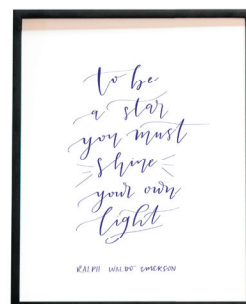 to be
a star
you must
shine
your own
light
RALPH WALDO EMERSON